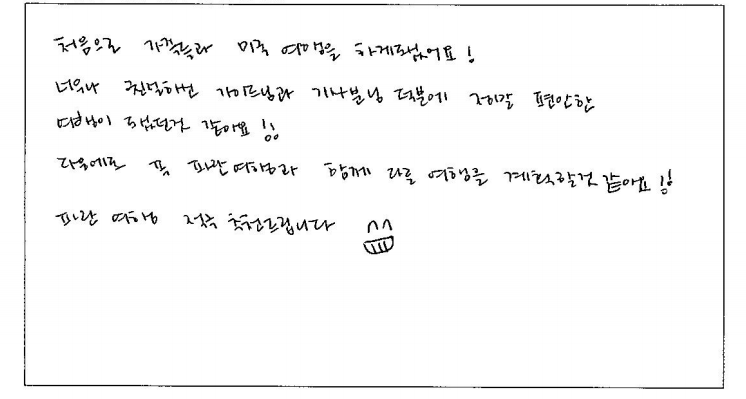 처음으로 가족들과 미국 여행을 하게되었어요!
너무나 친절하신 가이드님과 기사분님 덕분에 정말 편안한
여행이 되었던것 같아요!!
다음에도 꼭 파란여행과 함께 다음 여행을 계획할것 같아요!!
파란 여행 적극 추천드립니다 ^^